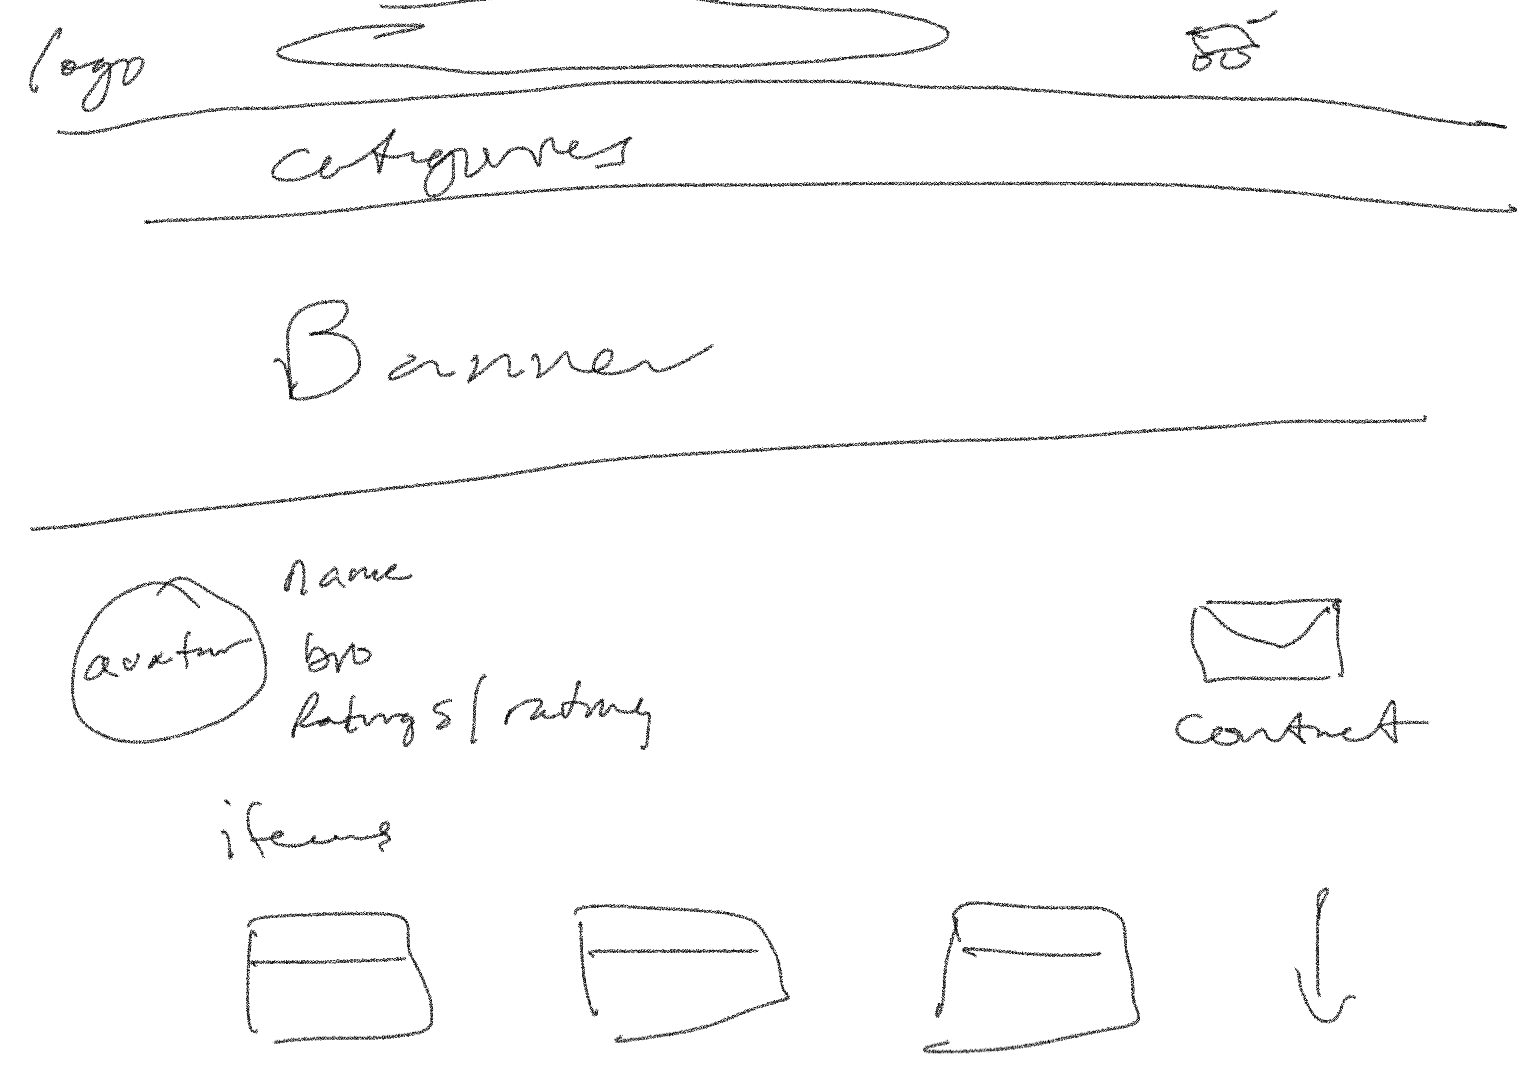 logo
categories
Banner
name
avatar
bio
Ratings / rating
contact
items